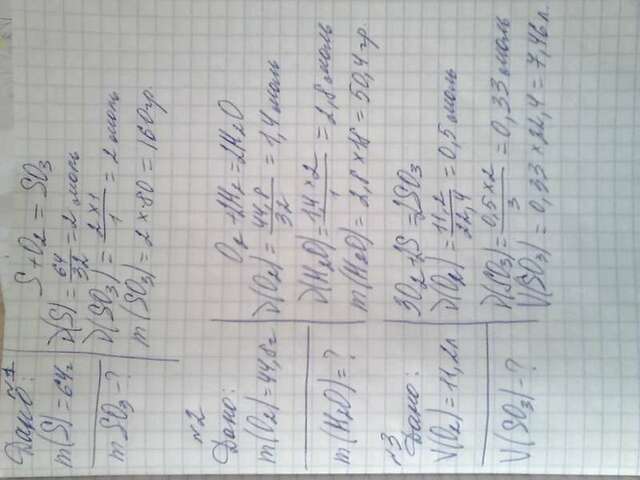 №1
Дано:
m(S)=64г
mSO3-?
S+O2=SO3
ν(S)=64/32=2 моль
ν(SO3)=2×1/1=2 моль
m(SO3)=2×80=160гр.
№2
Дано:
m(O2)=44,8г
m(H2O)=?
O2+2H2=2H2O
ν(O2)=44,8/32=1,4 моль
ν(H2O)=1,4×2/1=2,8 моль
m(H2O)=2,8×18=50,4гр.
№3
Дано:
V(O2)=11,2л
V(SO3)-?
3O2+2S=2SO3
ν(O2)=11,2/22,4=0,5 моль
ν(SO3)=0,5×2/3=0,33 моль
V(SO3)=0,33×22,4=7,46л.